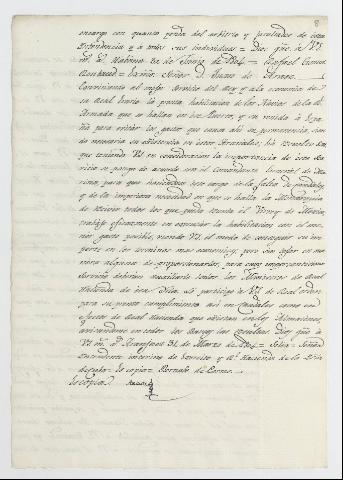 8
encargo con quanto penda del arbitrio y facultades de esta
Intendencia y a todos sus individuos = Dios gũe. á V.S.
m. a. Habana 30 de Junio de 1804. = Rafael Gomez
Roubaud = Exmo. Señor D.
Conviniendo al mejor servicio del Rey y a la economia de
su Real Erario la pronta habilitacion de los Navios de la Rl.
Armada que se hallan en ese Puerto, y su venida á Espa
ña para evitar los gastos que causa ahi su permanencia, sien
do necesaria su existencia en estos Arsenales; há resuelto S.M.
que teniendo VS. en consideracion la importancia de este Ser
vicio se ponga de acuerdo con el Comandante General de Ma
rina, para que haciendose este cargo de la falta de fondos,
y de la imperiosa necesidad en que se halla la Monarquia
de recivir todos los que pueda remitir el Virrey de Mexico,
trabaje eficazmente en concluir la habilitacion con el me
nor gasto posible, viendo VS. el modo de conseguir su im
porte en los terminos mas
mera alguna de proporcionarlos, para cuyo importantisimo
Servicio deberan auxiliarle todos los Ministros de Real
Hacienda de esa Isla. Lo participo á VS. de Real orden
para su puntual cumplimiento asi en caudales como en
efectos de Real Hacienda que existan en los Almacenes,
avisandome en todos los Correos las resultas. Dios gũe. á
VS. m. a. Aranjuez 31 de Marzo de 1804 = Soler = Señor
Intendente interino de Exercito y Rl. Hacienda de la Isla
de Cuba = Es copia =
Es copia.